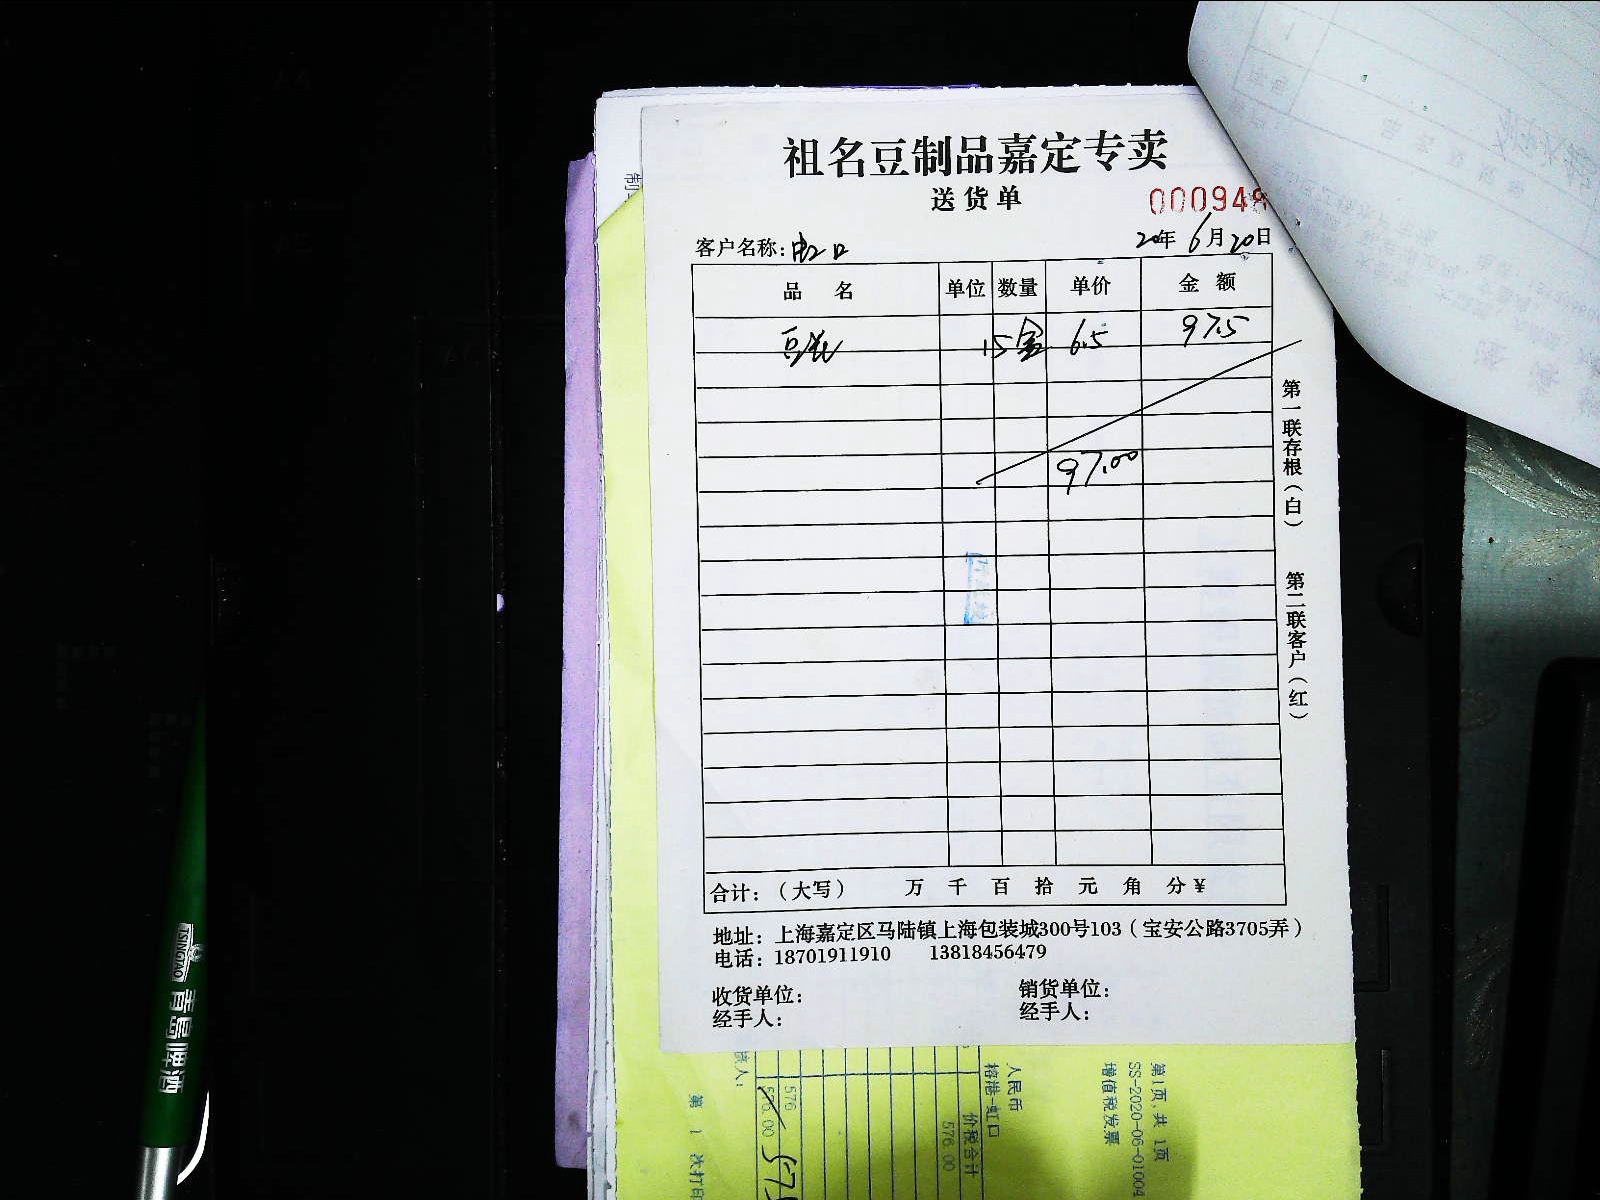 祖名豆制品嘉定专卖
送货单
000948
客户名称: 虹口
20年 6月 20日
品 名 单位 数量 单价 金 额
豆花 15盒 6.5 97.5
97.00
第一联存根（白） 第二联客户（红）
合计：（大写） 万 千 百 拾 元 角 分 ¥
地址：上海嘉定区马陆镇上海包装城300号103（宝安公路3705弄）
电话：18701911910 13818456479
收货单位： 销货单位：
经手人： 经手人：
第1页，共 1页
SS-2020-06-01004
增值税发票
人民币
榕港-虹口
价税合计
576.00
576
576.00
第 1 次打印
TSINGTAO
青岛啤酒